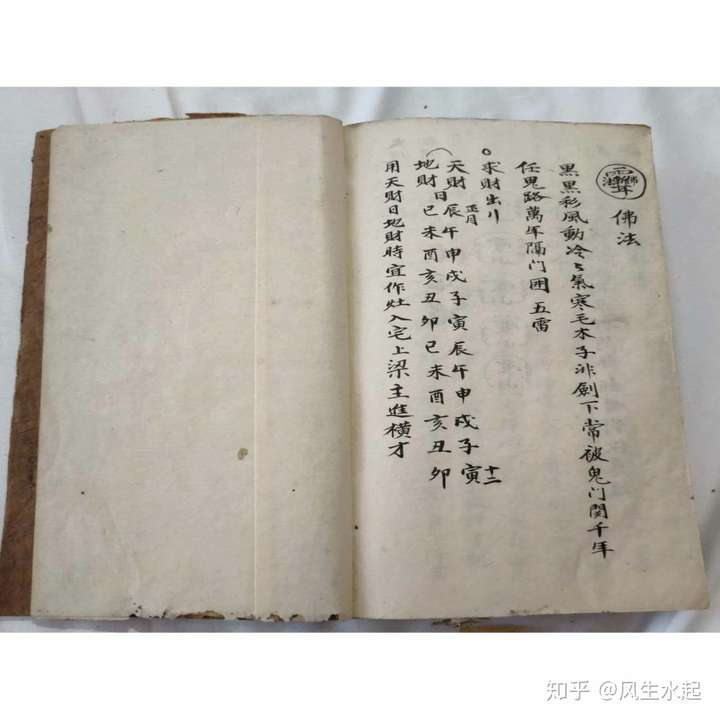 佛法
黑黑彩風動冷々氣寒毛木子洋劍下常被鬼门関千年
任鬼路萬年隔门囲 五雷
求財出川
正月 十二
天財日辰午申戌子寅辰午申戌子寅
地財日巳未酉亥丑卯巳未酉亥丑卯
用天财日地財時宜作灶入宅上梁主進横才
知乎 @风生水起